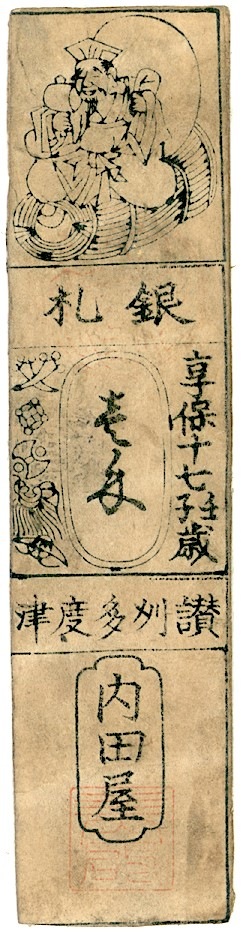 銀札
享保十七壬子歳
壱匁
讃刕多度津
内田屋